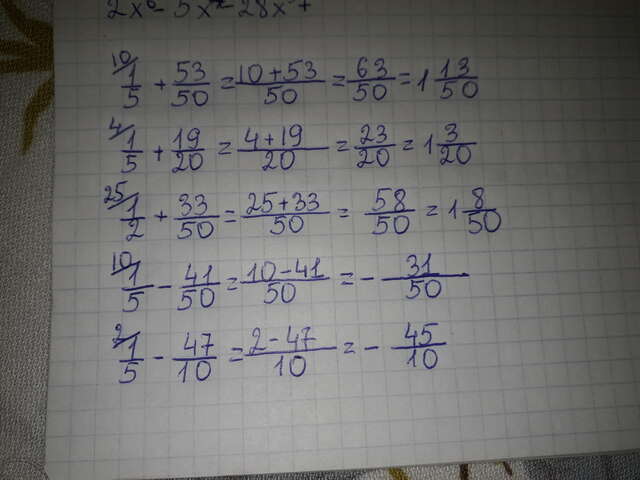 2x⁶ - 5x⁴ - 28x³ +
10/ 1/5 + 53/50 = 10+53/50 = 63/50 = 1 13/50
4/ 1/5 + 19/20 = 4+19/20 = 23/20 = 1 3/20
25/ 1/2 + 33/50 = 25+33/50 = 58/50 = 1 8/50
10/ 1/5 - 41/50 = 10-41/50 = - 31/50
2/ 1/5 - 47/10 = 2-47/10 = - 45/10